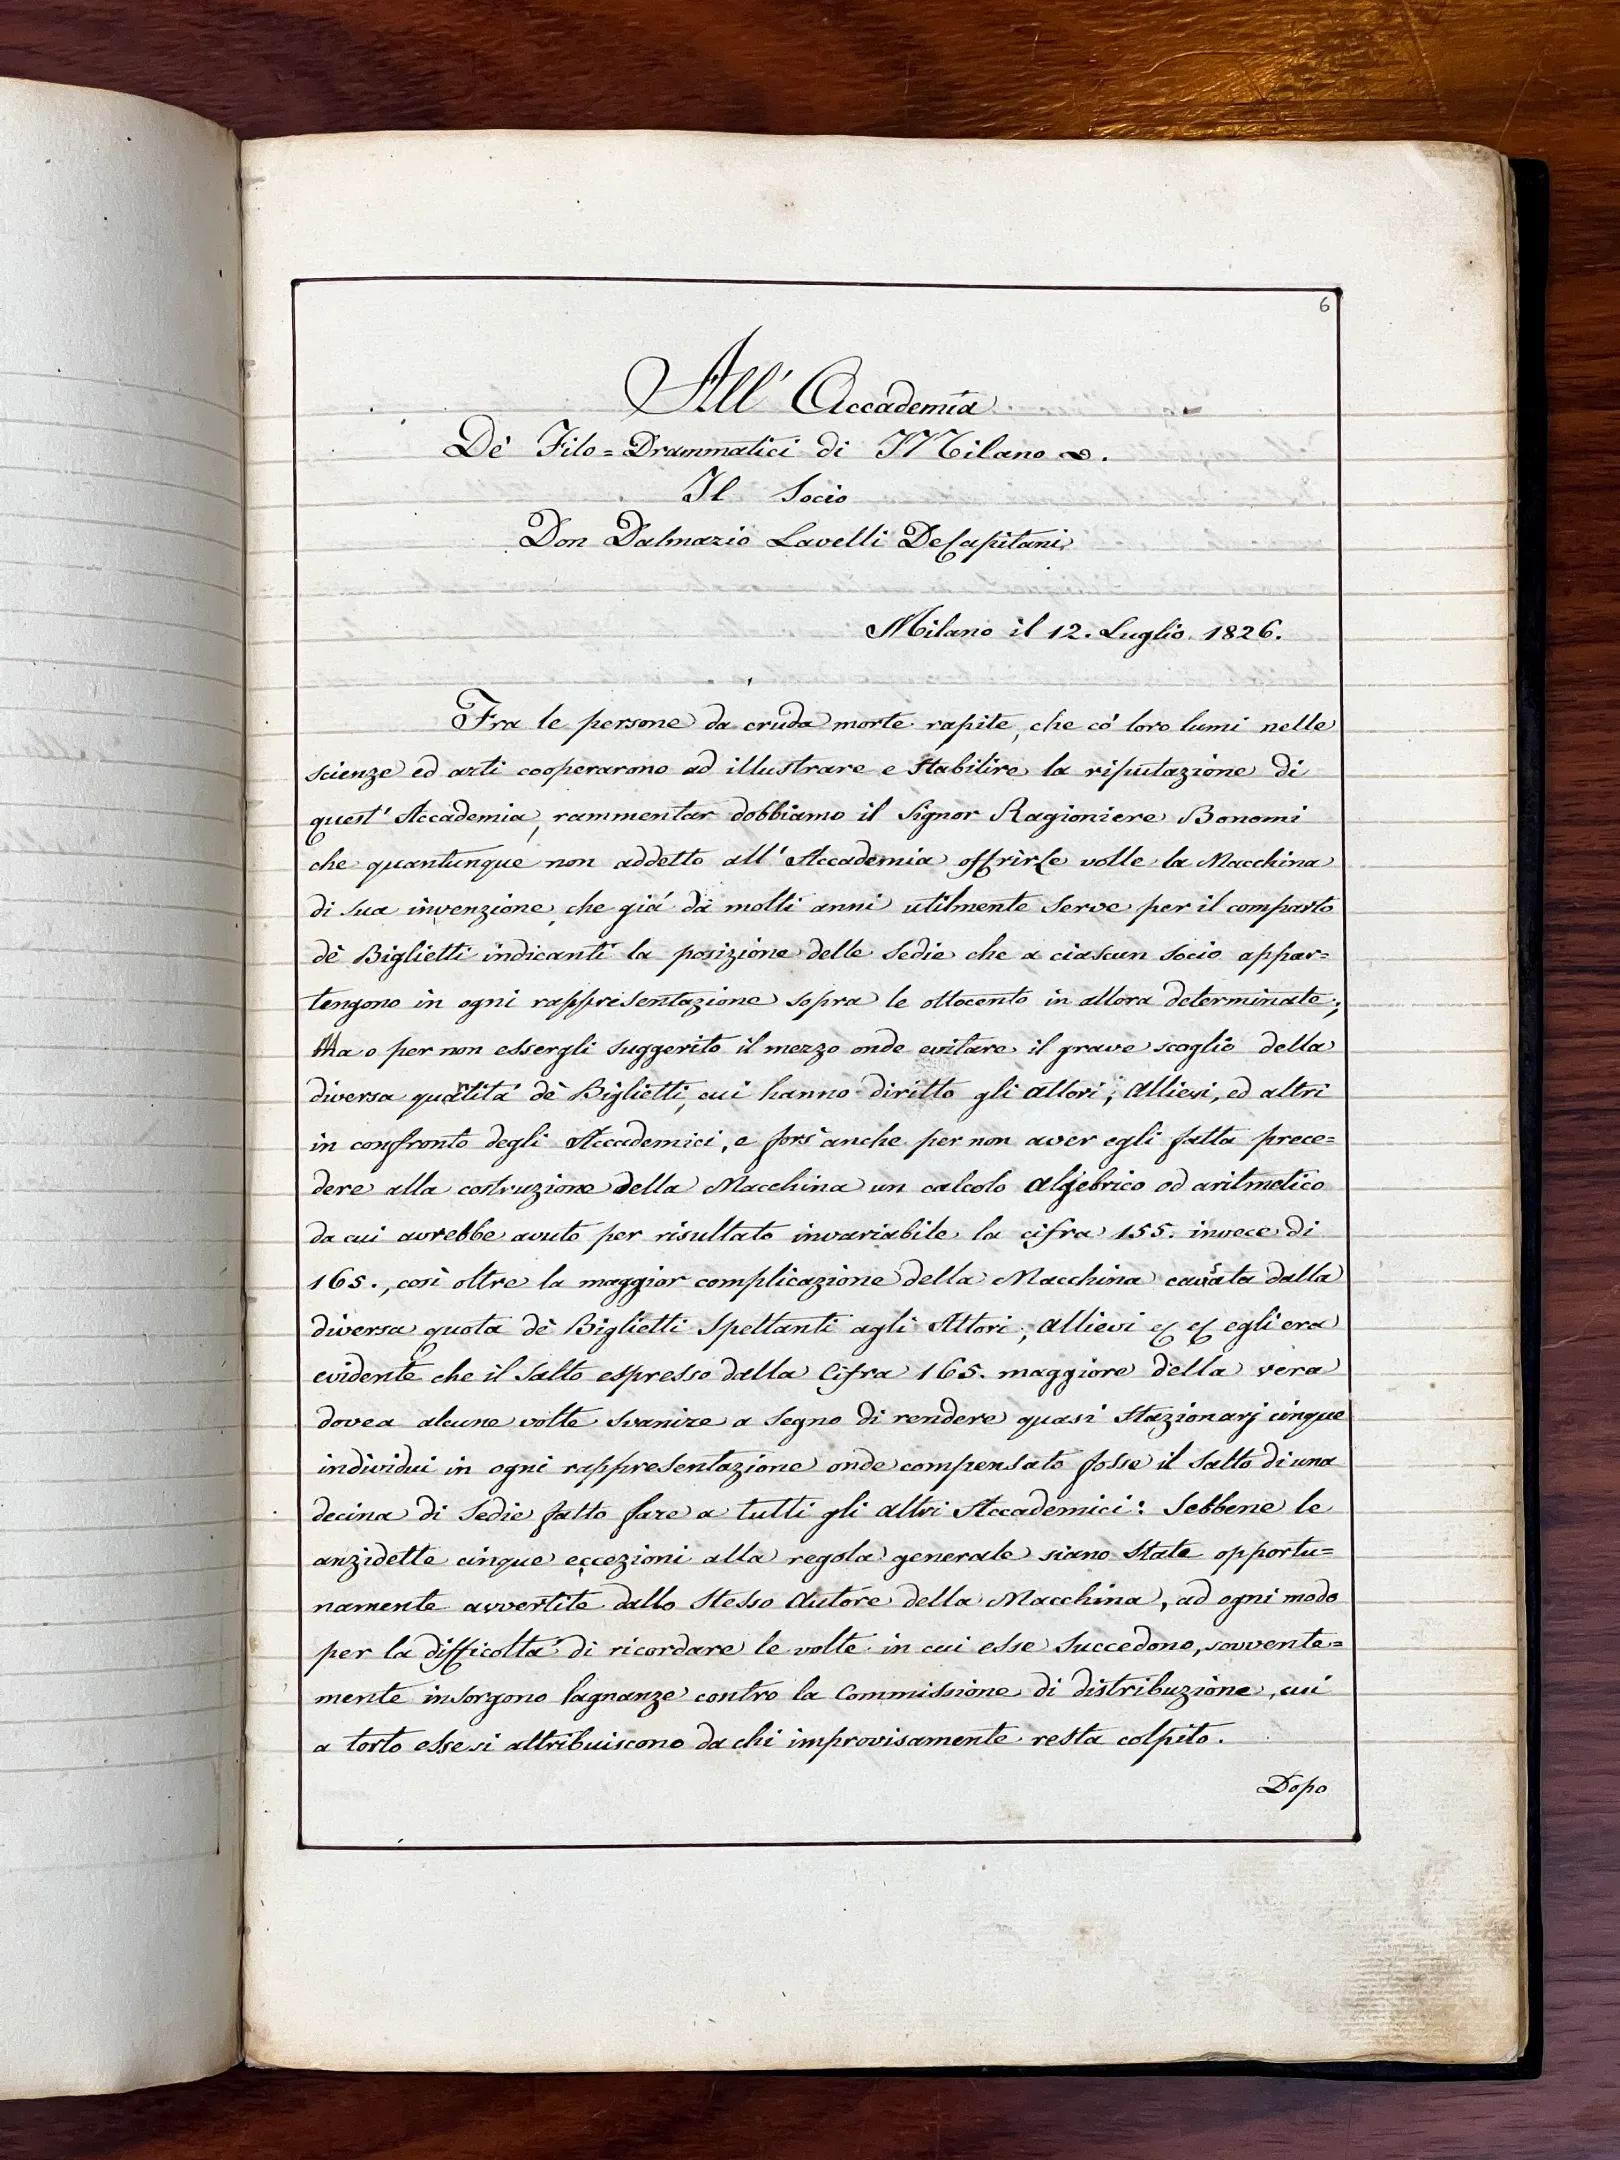 6
All' Accademia
De' Filo=Drammatici di Milano
Il Socio
Don Dalmazio Lavelli DeCapitani
Milano il 12. Luglio 1826.
Fra le persone da cruda morte rapite, che co' loro lumi nelle
scienze ed arti cooperarono ad illustrare e stabilire la riputazione di
quest' Accademia, rammentar dobbiamo il Signor Ragioniere Bonomi
che quantunque non addetto all' Accademia offrirLe volle la Macchina
di sua invenzione, che giá da molti anni utilmente serve per il comparto
de' Biglietti indicanti la posizione delle Sedie che a ciascun socio appar=
tengono in ogni rappresentazione sopra le ottocento in allora determinate;
Ma o per non essergli suggerito il mezzo onde evitare il grave scoglio della
diversa quantitá de' Biglietti, cui hanno diritto gli Attori, Allievi, ed altri
in confronto degli Accademici, e fors' anche per non aver egli fatta prece=
dere alla costruzione della Macchina un calcolo algebrico od aritmetico
da cui avrebbe avuto per risultato invariabile la cifra 155. invece di
165., cosi oltre la maggior complicazione della Macchina causata dalla
diversa quota de' Biglietti Spettanti agli Attori, allievi & & egli era
evidente che il Salto espresso dalla Cifra 165. maggiore della vera
dovea alcune volte svanire a Segno di rendere quasi Stazionarj cinque
individui in ogni rappresentazione onde compensato fosse il Salto di una
decina di Sedie fatto fare a tutti gli altri Accademici: Sebbene le
anzidette cinque eccezioni alla regola generale siano State opportu=
namente avvertite dallo Stesso Autore della Macchina, ad ogni modo
per la difficoltá di ricordare le volte in cui esse Succedono, sovvente=
mente insorgono lagnanze contro la Commissione di distribuzione, cui
a torto esse si attribuiscono da chi improvisamente resta colpito.
Dopo